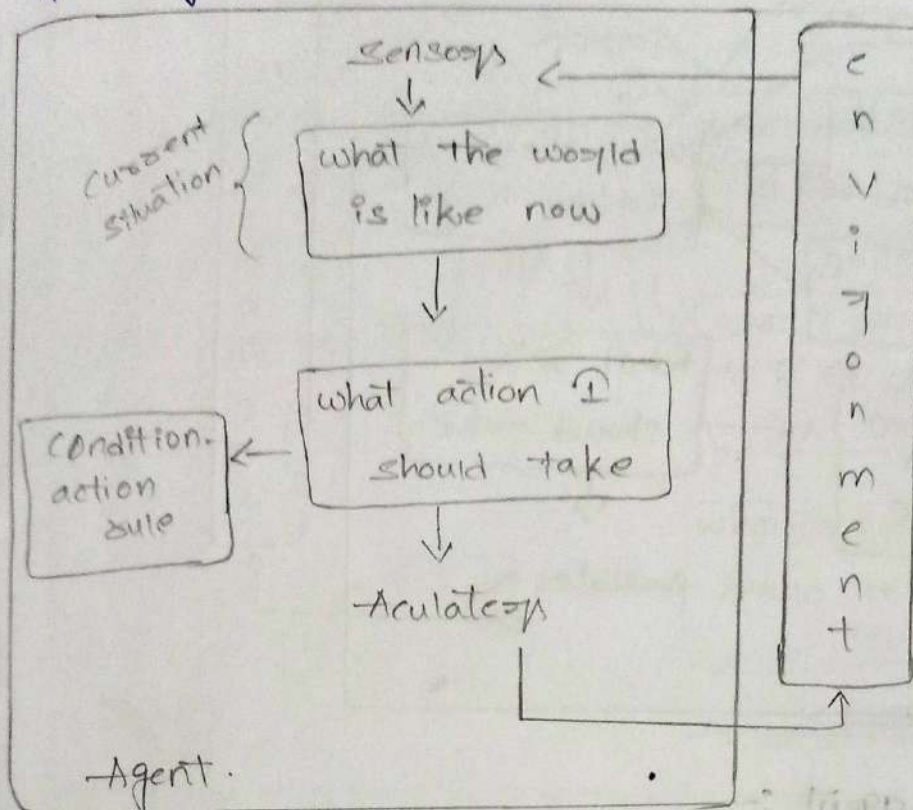 Sensors
current
situation
what the world
is like now
what action I
should take
condition-
action
rule
Aculators
Agent.
environment